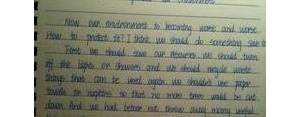 Now our environment is becoming worse and worse.
How to protect it? I think we should do something
First we should save our resources we should turn
off the lights or showers and we should recycle waste
things that can be used again we shouldn't use paper
towels or napkins so that no more trees would be cut
down. And we had better not throw away many useful